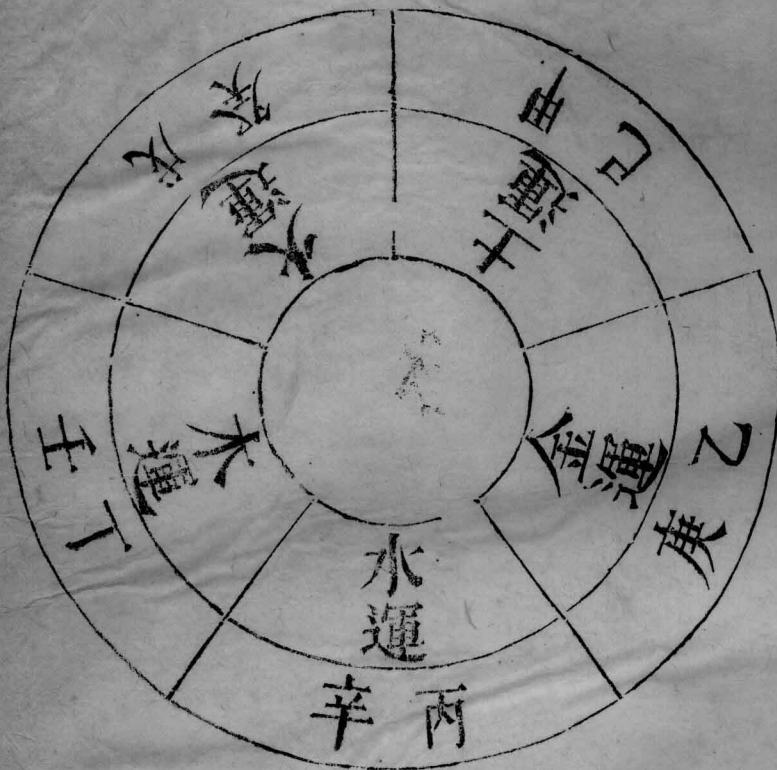 甲己
土運
乙庚
金運
丙辛
水運
丁壬
木運
戊癸
火運